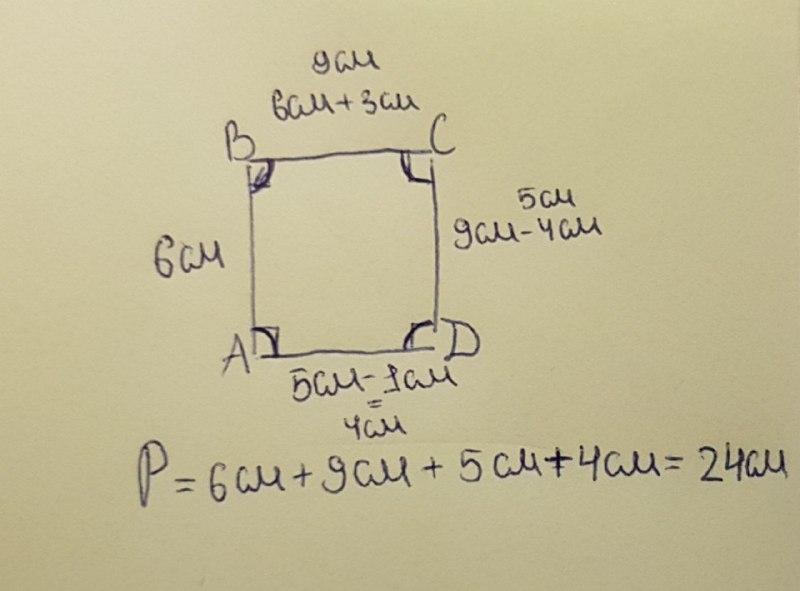 9см
6см+3см
B C
5см
9см-4см
6см
A D
5см-1см
=
4см
P=6см+9см+5см+4см=24см